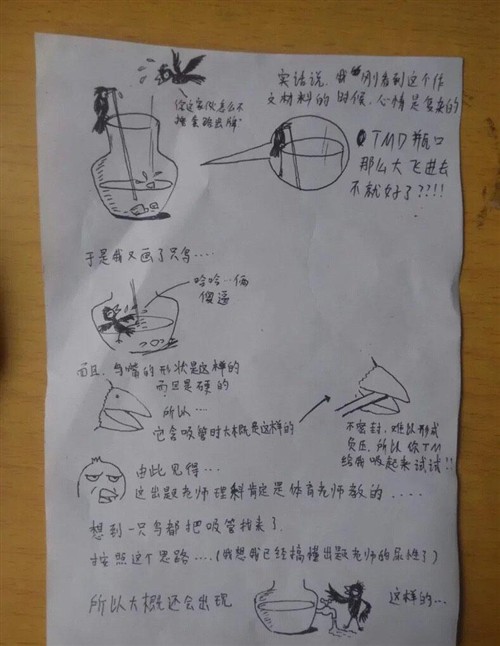 实话说，我刚看到这个作
文材料的时候，心情是复杂的
TMD 瓶口
那么大飞进去
不就好了？？！！
于是我又画了只鸟....
哈哈一俩
傻逼
而且，鸟嘴的形状是这样的
而且是硬的
所以...
它含吸管时大概是这样的
不密封，难以形成
负压，所以你TM
给我吸起来试试！！
由此见得...
这出题老师理科肯定是体育老师教的....
想到一只鸟都把吸管找来了.
按照这个思路....(我想我已经搞懂出题老师的尿性了)
所以大概还会出现
这样的...